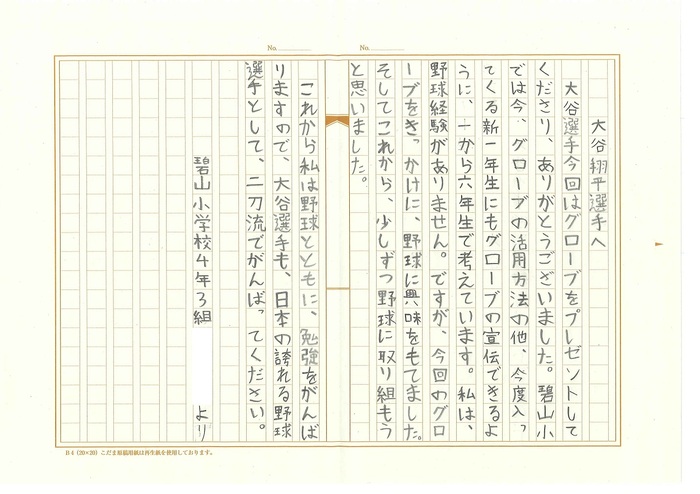 No.
No.
大谷翔平選手へ
大谷選手今回はグローブをプレゼントして
くださり、ありがとうございました。碧山小
では今、グローブの活用方法の他、今度入っ
てくる新一年生にもグローブの宣伝できるよ
うに、一から六年生で考えています。私は、
野球経験がありません。ですが、今回のグロ
ーブをきっかけに、野球に興味をもてました。
そしてこれから、少しずつ野球に取り組もう
と思いました。
これから私は野球とともに、勉強をがんば
りますので、大谷選手も、日本の誇れる野球
選手として、二刀流でがんばってください。
碧山小学校4年3組
より
B4（20×20）こだま原稿用紙は再生紙を使用しております。